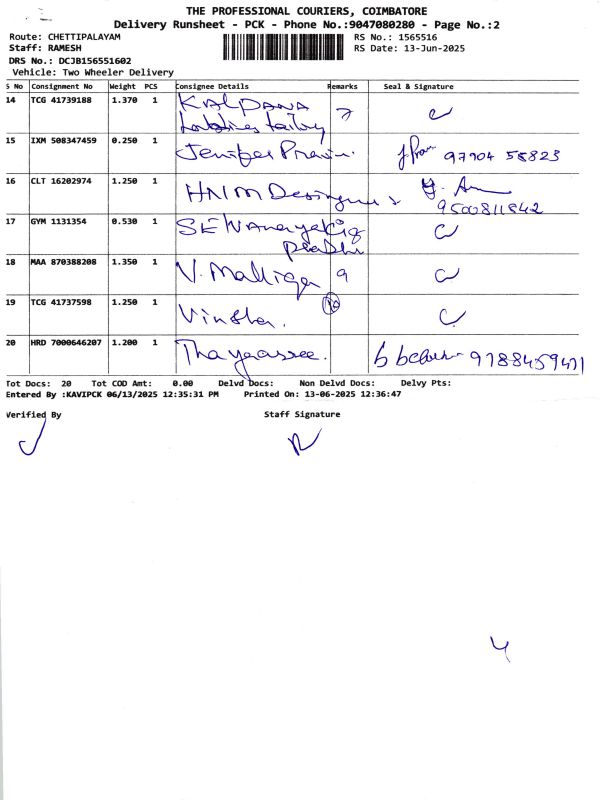 THE PROFESSIONAL COURIERS, COIMBATORE
Delivery Runsheet - PCK - Phone No.:9047080280 - Page No.:2
Route: CHETTIPALAYAM
RS No.: 1565516
Staff: RAMESH
RS Date: 13-Jun-2025
DRS No.: DCJB156551602
Vehicle: Two Wheeler Delivery
S No Consignment No Weight PCS Consignee Details Remarks Seal & Signature
14 TCG 41739188 1.370 1 KALPANA
15 IXM 508347459 0.250 1 Jenifer Pravin. 97904 58823
16 CLT 16202974 1.250 1 HNM Designers
9500811842
17 GYM 1131354 0.530 1
18 MAA 870388208 1.350 1 V. Malliga 9
19 TCG 41737598 1.250 1
20 HRD 7000646207 1.200 1 9788459471
Tot Docs: 20 Tot COD Amt: 0.00 Delvd Docs: Non Delvd Docs: Delvy Pts:
Entered By :KAVIPCK 06/13/2025 12:35:31 PM Printed On: 13-06-2025 12:36:47
Verified By Staff Signature